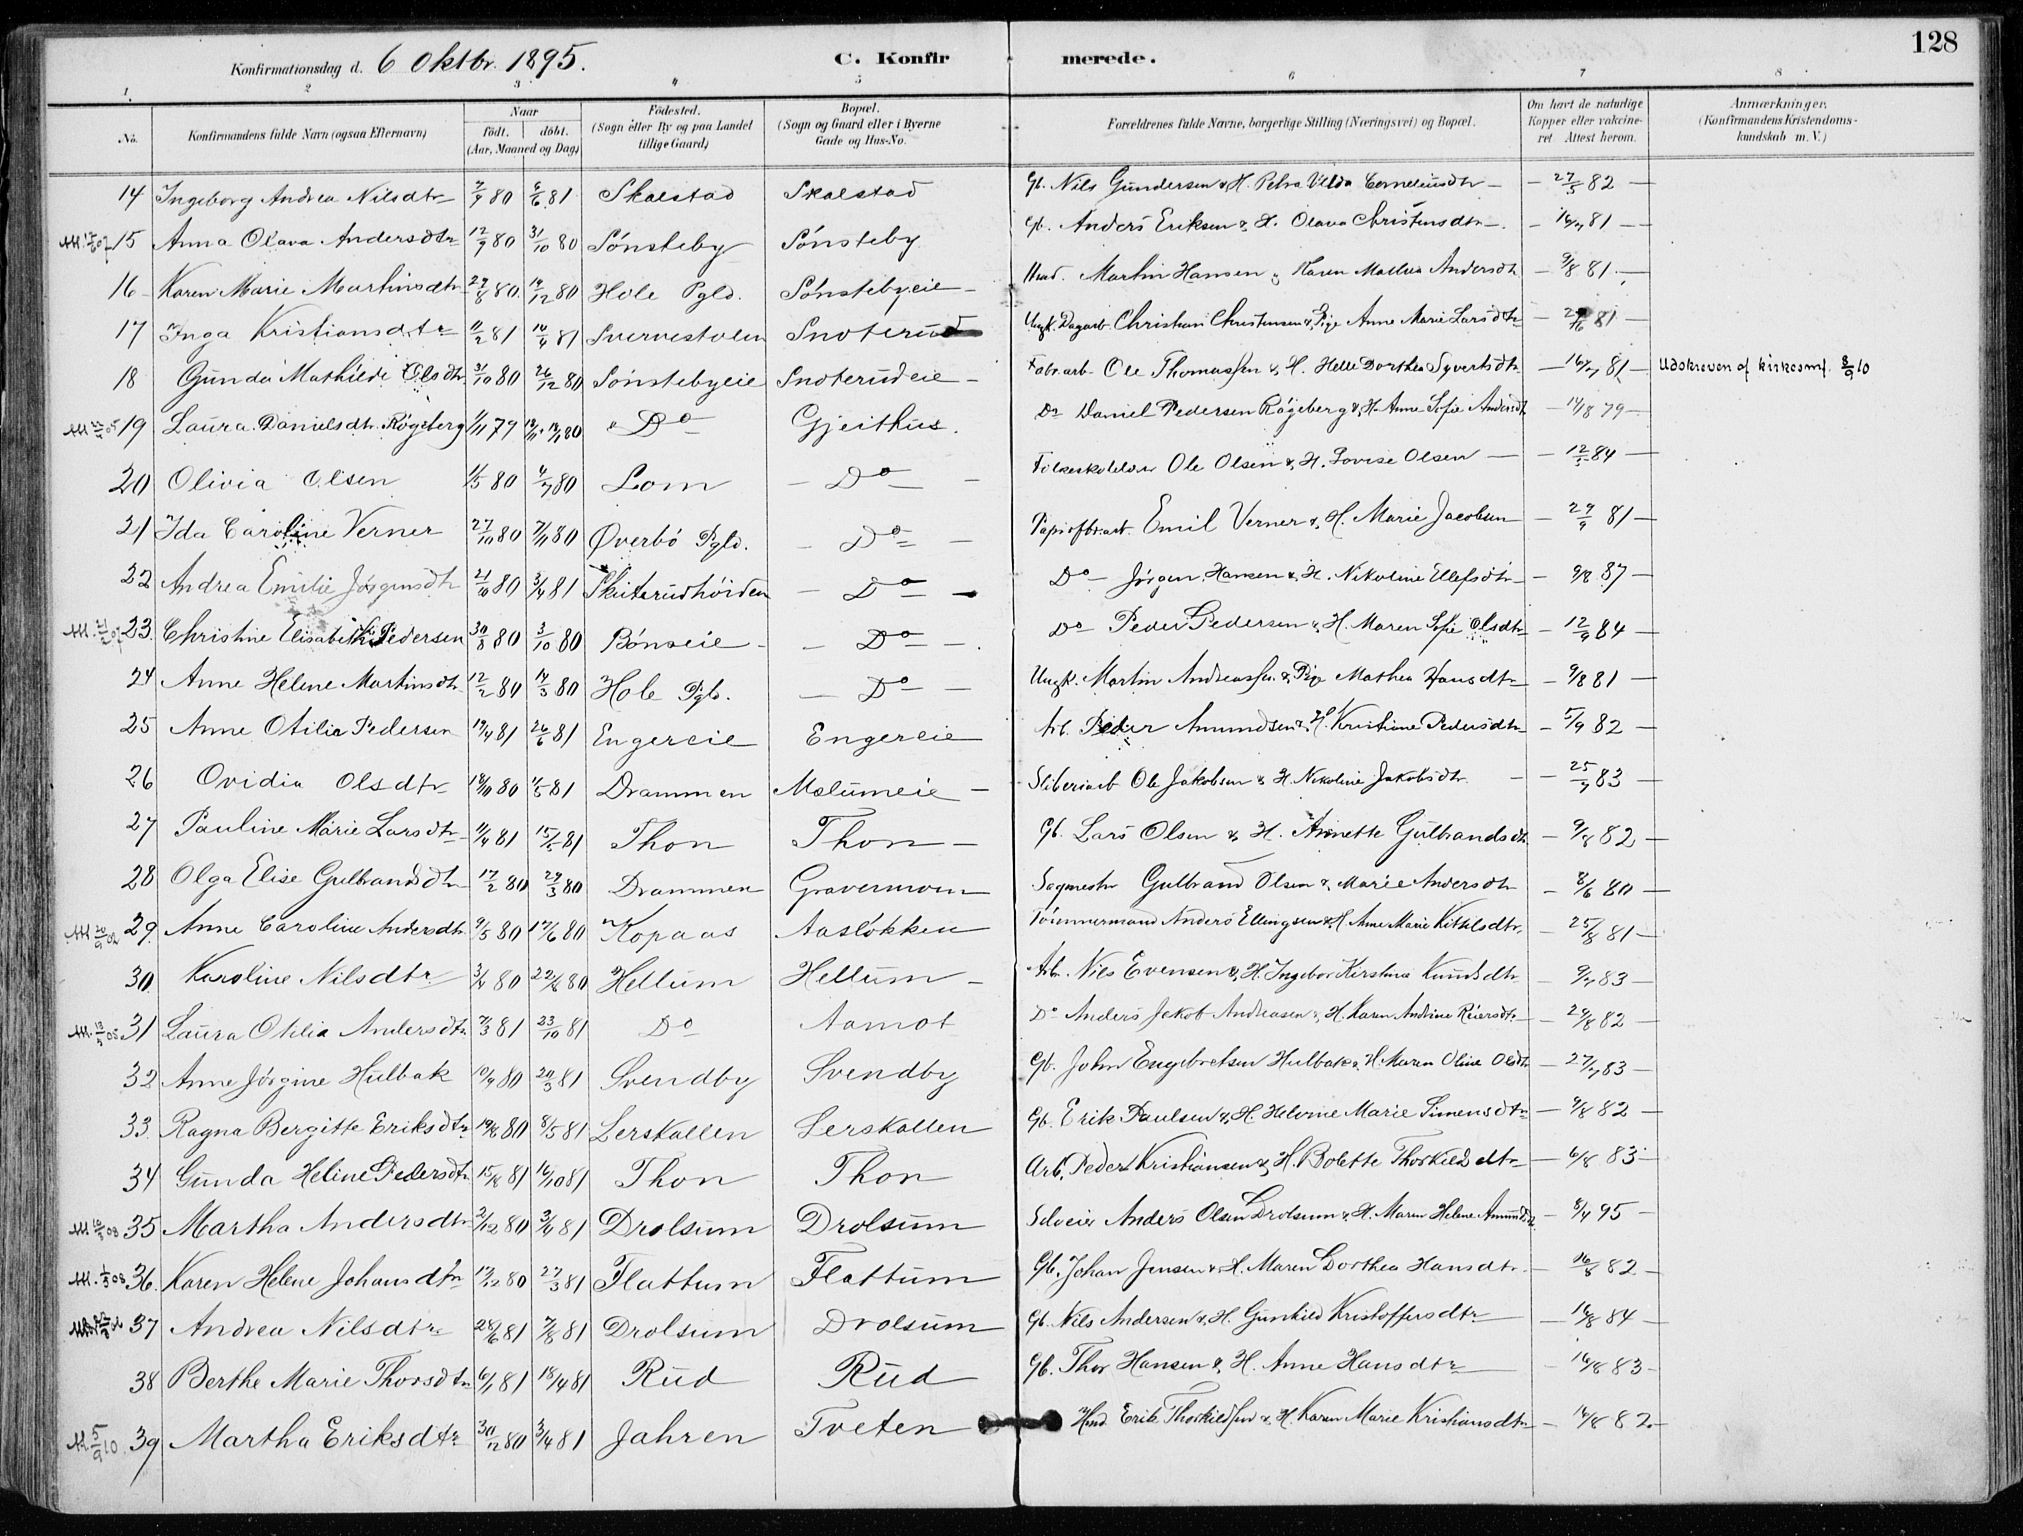 128
Konfirmationsdag d. 6 Oktbr. 1895. C. Konfirmerede.
1. 2 3 4 5 6 7 8
No. Konfirmandens fulde Navn (ogsaa Efternavn) Naar født. døbt. (Aar, Maaned og Dag) Fødested. (Sogn eller By og paa Landet tillige Gaard) Bopæl. (Sogn og Gaard eller i Byerne Gade og Hus-No. Forældrenes fulde Navne, borgerlige Stilling (Næringsvei) og Bopæl. Om havt de naturlige Kopper eller vakcineret. Attest herom. Anmærkninger. (Konfirmandens Kristendomskundskab m. V.)
14 Ingeborg Andrea Nilsdtr 80 6/6 81 Skalstad Skalstad Gb. Nils Gundersen & H. Petra Corneliusdtr 27/5 82
15 Anna Olava Andersdtr 12/9 80 31/10 80 Sønsteby Sønsteby Gb. Anders Eriksen & H. Olava Christensdtr 16/7 81
16 Karen Marie Martinsdtr 29/8 80 19/12 80 Hole Pgld. Sønstebyeie Martin Hansen & Karen Mathea Andersdtr 9/8 81
17 Inga Kristiansdtr 11/2 81 81 Snoterud Ungk. Dagarb. Christian Christensen & Pige Anne Marie Larsdtr 81
18 Gunda Mathilde Olsdtr 31/10 80 26/12 80 Sønstebyeie Snoterudeie Fabr.arb. Ole Thomassen & H. Helle Dorthea Syvertsdtr 16/7 81 Udskreven af kirkesmf. 8/9 10
19 Laura Danielsdtr. Røgeberg 1/11 79 80 Do Gjeithus. Do Daniel Pedersen Røgeberg & H. Anne Sofie Andersdt 14/8 79
20 Olivia Olsen 1/5 80 4/7 80 Lom Do Ole Olsen & H. Lovise Olsen 12/5 84
21 Ida Caroline Verner 27/10 80 7/11 80 Øverbö Pgld. Do Emil Verner & H. Marie Jacobsen 29/9 81
22 Andrea Emilie Jørgensdtr 21/10 80 3/4 81 Skuterudhöiden Do Do Jørgen Hansen & H. Nikoline Ellefsdtr 9/8 87
23. Christine Elisabeth Pedersen 30/8 80 3/10 80 Bönseie Do Do Peder Pedersen & H. Maren Sofie Olsdtr 12/9 84
24 Anne Helene Martinsdtr 12/2 80 14/3 80 Hole Pgld. Do Ungk. Martin Andreassen & Pige Mathea Hansdtr 9/8 81
25 Anne Otilia Pedersen 19/4 81 26/6 81 Engereie Engereie Arb. Peder Amundsen & H. Kristine Pedersdtr 5/9 82
26 Ovidia Olsdtr 80 81 Drammen Mælumeie Sliberiarb Ole Jakobsen & H. Nikoline Jakobsdtr. 25/7 83
27 Pauline Marie Larsdtr 11/4 81 15/5 81 Thon Thon Gb. Lars Olsen & H. Annette Gulbrandsdtr 9/8 82
28 Olga Elise Gulbrandsdtr 17/2 80 29/3 80 Drammen Gravermoen Sagmester Gulbrand Olsen & Marie Andersdtr 8/6 80
29. Anne Caroline Andersdtr 9/5 80 17/6 80 Kopaas Aasløkken Tömmermand Anders Ellingsen & H. Anne Marie Kittilsdtr. 25/8 81
30 Karoline Nilsdtr 80 80 Hellum Hellum Arb. Nils Evensen & H. Ingebor Kirstine Knudsdtr 9/7 83
31 Laura Otilia Andersdtr 7/3 81 23/10 81 Do Aamot Do Anders Jakob Andreasen & H. Karen Andrine Reiersdtr 29/8 82
32 Anne Jørgine Hulbak 10/9 80 20/3 81 Svendby Svendby Gb. John Engebretsen Hulbak & H. Maren Oline Olsdtr 27/7 83
33. Ragna Bergitte Eriksdtr 80 8/5 81 Lerskallen Lerskallen Gb. Erik Paulsen & H. Helvine Marie Simensdtr 9/8 82
34 Gunda Heline Pedersdtr 81 16/10 81 Thon Thon Arb. Peder Kristiansen & H. Bolette Thorkildsdtr 6/8 83
35 Martha Andersdtr 2/12 80 3/4 81 Drolsum Drolsum Selveier Anders Olsen Drolsum & H. Maren Helene Amundsdtr 8/4 95
36. Karen Helene Johansdtr 80 27/3 81 Flattum Flattum Gb. Johan Jensen & H. Maren Dorthea Hansdtr. 16/8 82
37 Andrea Nilsdtr 28/6 81 7/8 81 Drolsum Drolsum Gb. Nils Andersen & H. Gunhild Kristoffersdtr 16/8 84
38 Berthe Marie Thorsdtr 6/1 81 18/4 81 Rud Rud Gb. Thor Hansen & H. Anne Hansdtr 16/8 83
M. 5/9 10. 39 Martha Eriksdtr 30/12 80 3/4 81 Jahren Tveten Hmd Erik Thorkildsen & H. Karen Marie Kristiansdtr 14/8 82